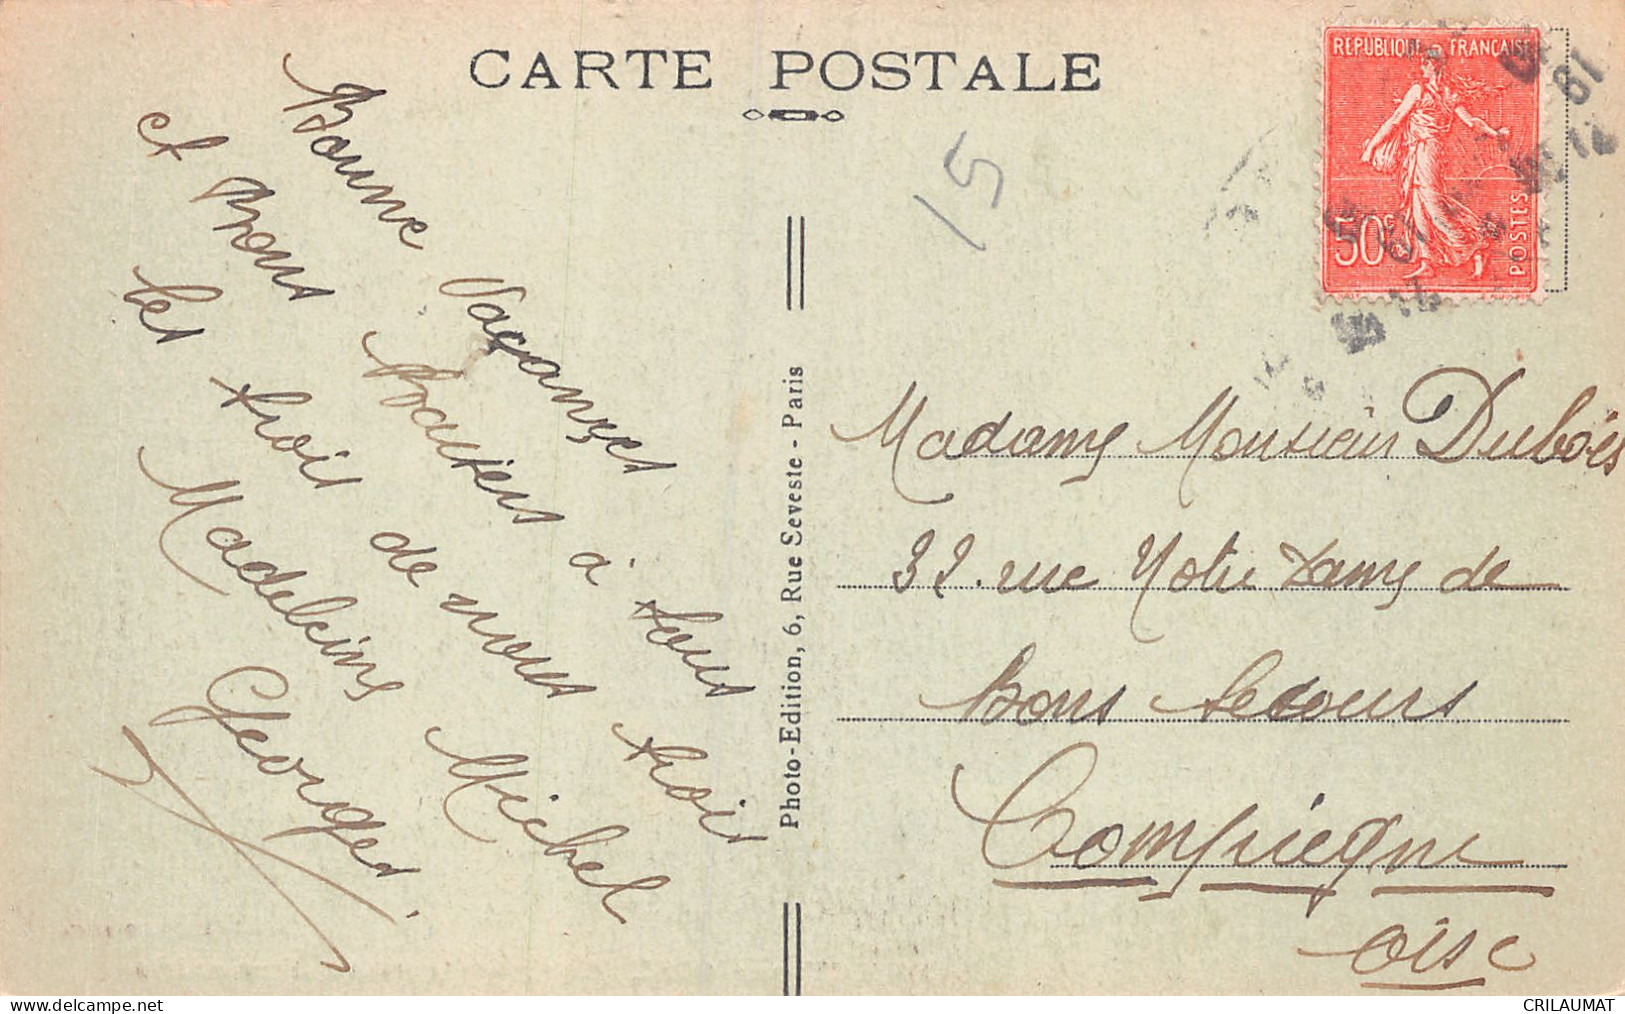 CARTE POSTALE
REPUBLIQUE FRANÇAISE
50c
POSTES
15
Bonne Vaçanzes
et Bons Baisers à tous
les trois de nous trois
Madeleine Michel
Georges.
Photo-Edition, 6, Rue Seveste - Paris
Madame Monsieur Dubois
32. rue Notre Dame de
Bons Secours
Compiègne
Oise
www.delcampe.net
CRILAUMAT